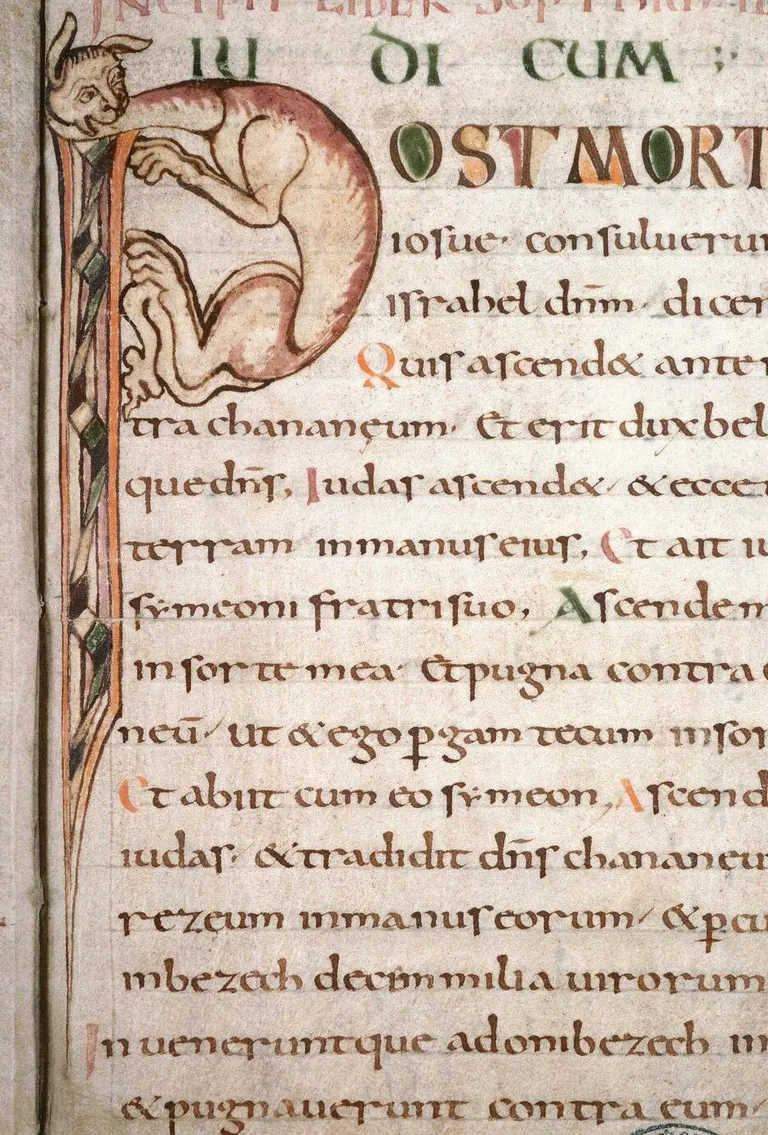 INCIPIT LIBER SOPTHIM
IU DI CUM ;
POST MORT
iosue· consuluerun
israhel dn̄m· dicen
Quis ascend& ante n
tra chananęum· Et erit dux bel
que dn̄s, Iudas ascend&· & ecce
terram in manus eius, Et ait iu
symeoni fratri suo, Ascende m
in sorte mea· Et pugna contra c
neū· ut & ego ꝑgam tecum in sor
Et abiit cum eo symeon, Ascend
iudas· & tradidit dn̄s chananeu
rezeum in manus eorum· & ꝑcu
in bezech decem milia uirorum
Inueneruntque adonibezech in
& pugnauerunt contra eum·